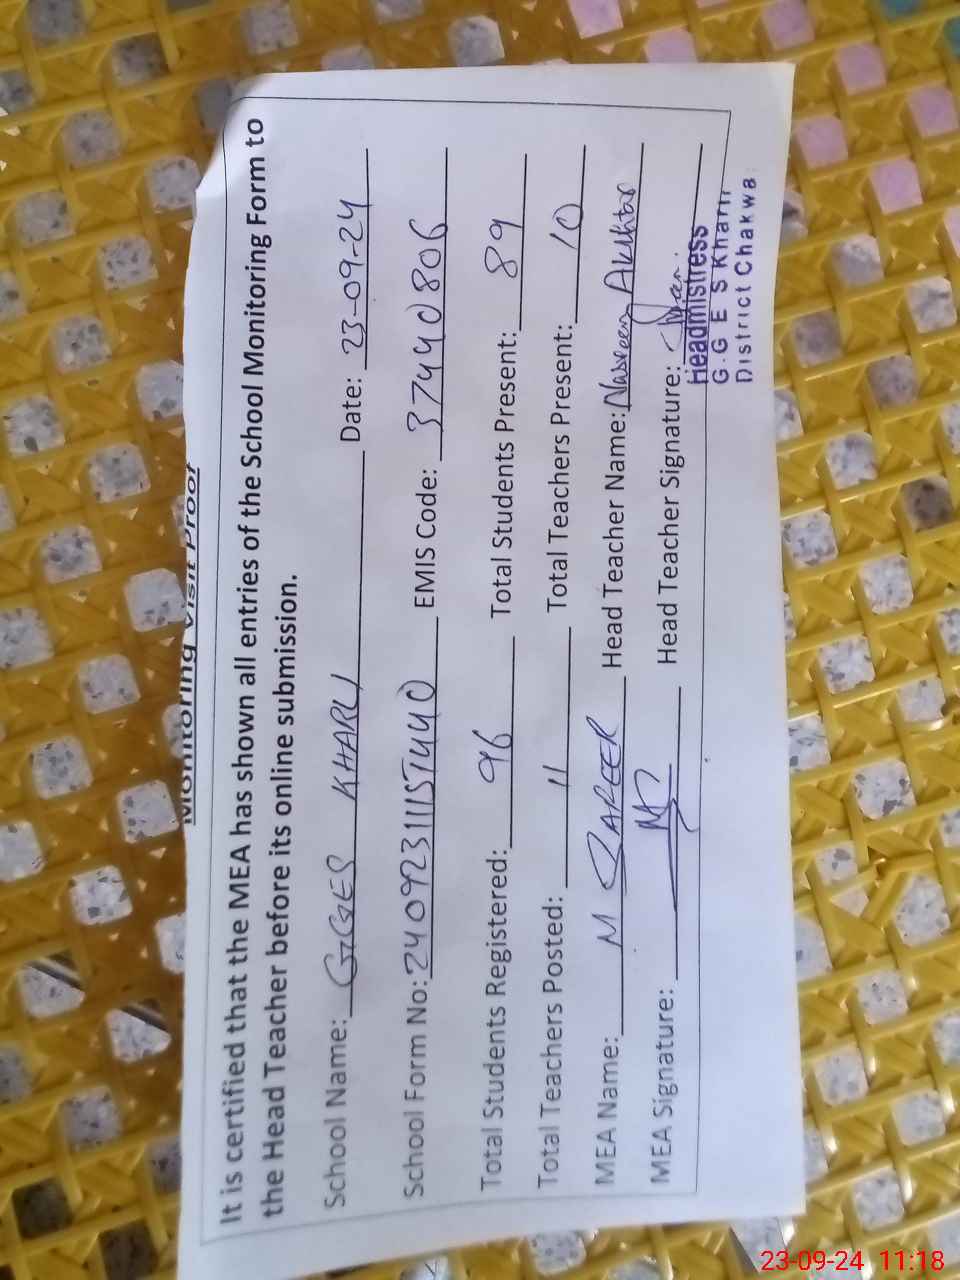 Monitoring Visit Proof
It is certified that the MEA has shown all entries of the School Monitoring Form to
the Head Teacher before its online submission.
School Name: GGES KHARLI Date: 23-09-24
School Form No: 24092311157440 EMIS Code: 37440806
Total Students Registered: 96 Total Students Present: 89
Total Teachers Posted: 11 Total Teachers Present: 10
MEA Name: M SAFEER Head Teacher Name: Nasreen Akhtar
MEA Signature: Head Teacher Signature:
Headmistress
G.G E S Kharli
District Chakwa
23-09-24 11:18